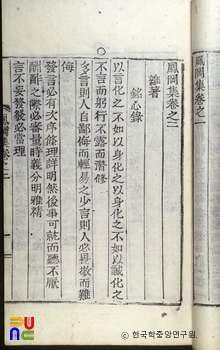 鳳岡集卷之一
鳳岡集卷之二
雜著
銘心錄
以言化之不如以身化之以身化之不如以誠化之
不言而躬行不露而潛修
多言則人自鄙侮而輕易之少言則人必畏敬而難
侮
發言必有次序條理詳明然後事可就而聽不厭
酬酢之際必審量時義分明雅精
言不妄發發必當理
鳳岡集卷之二
© 한국학중앙연구원